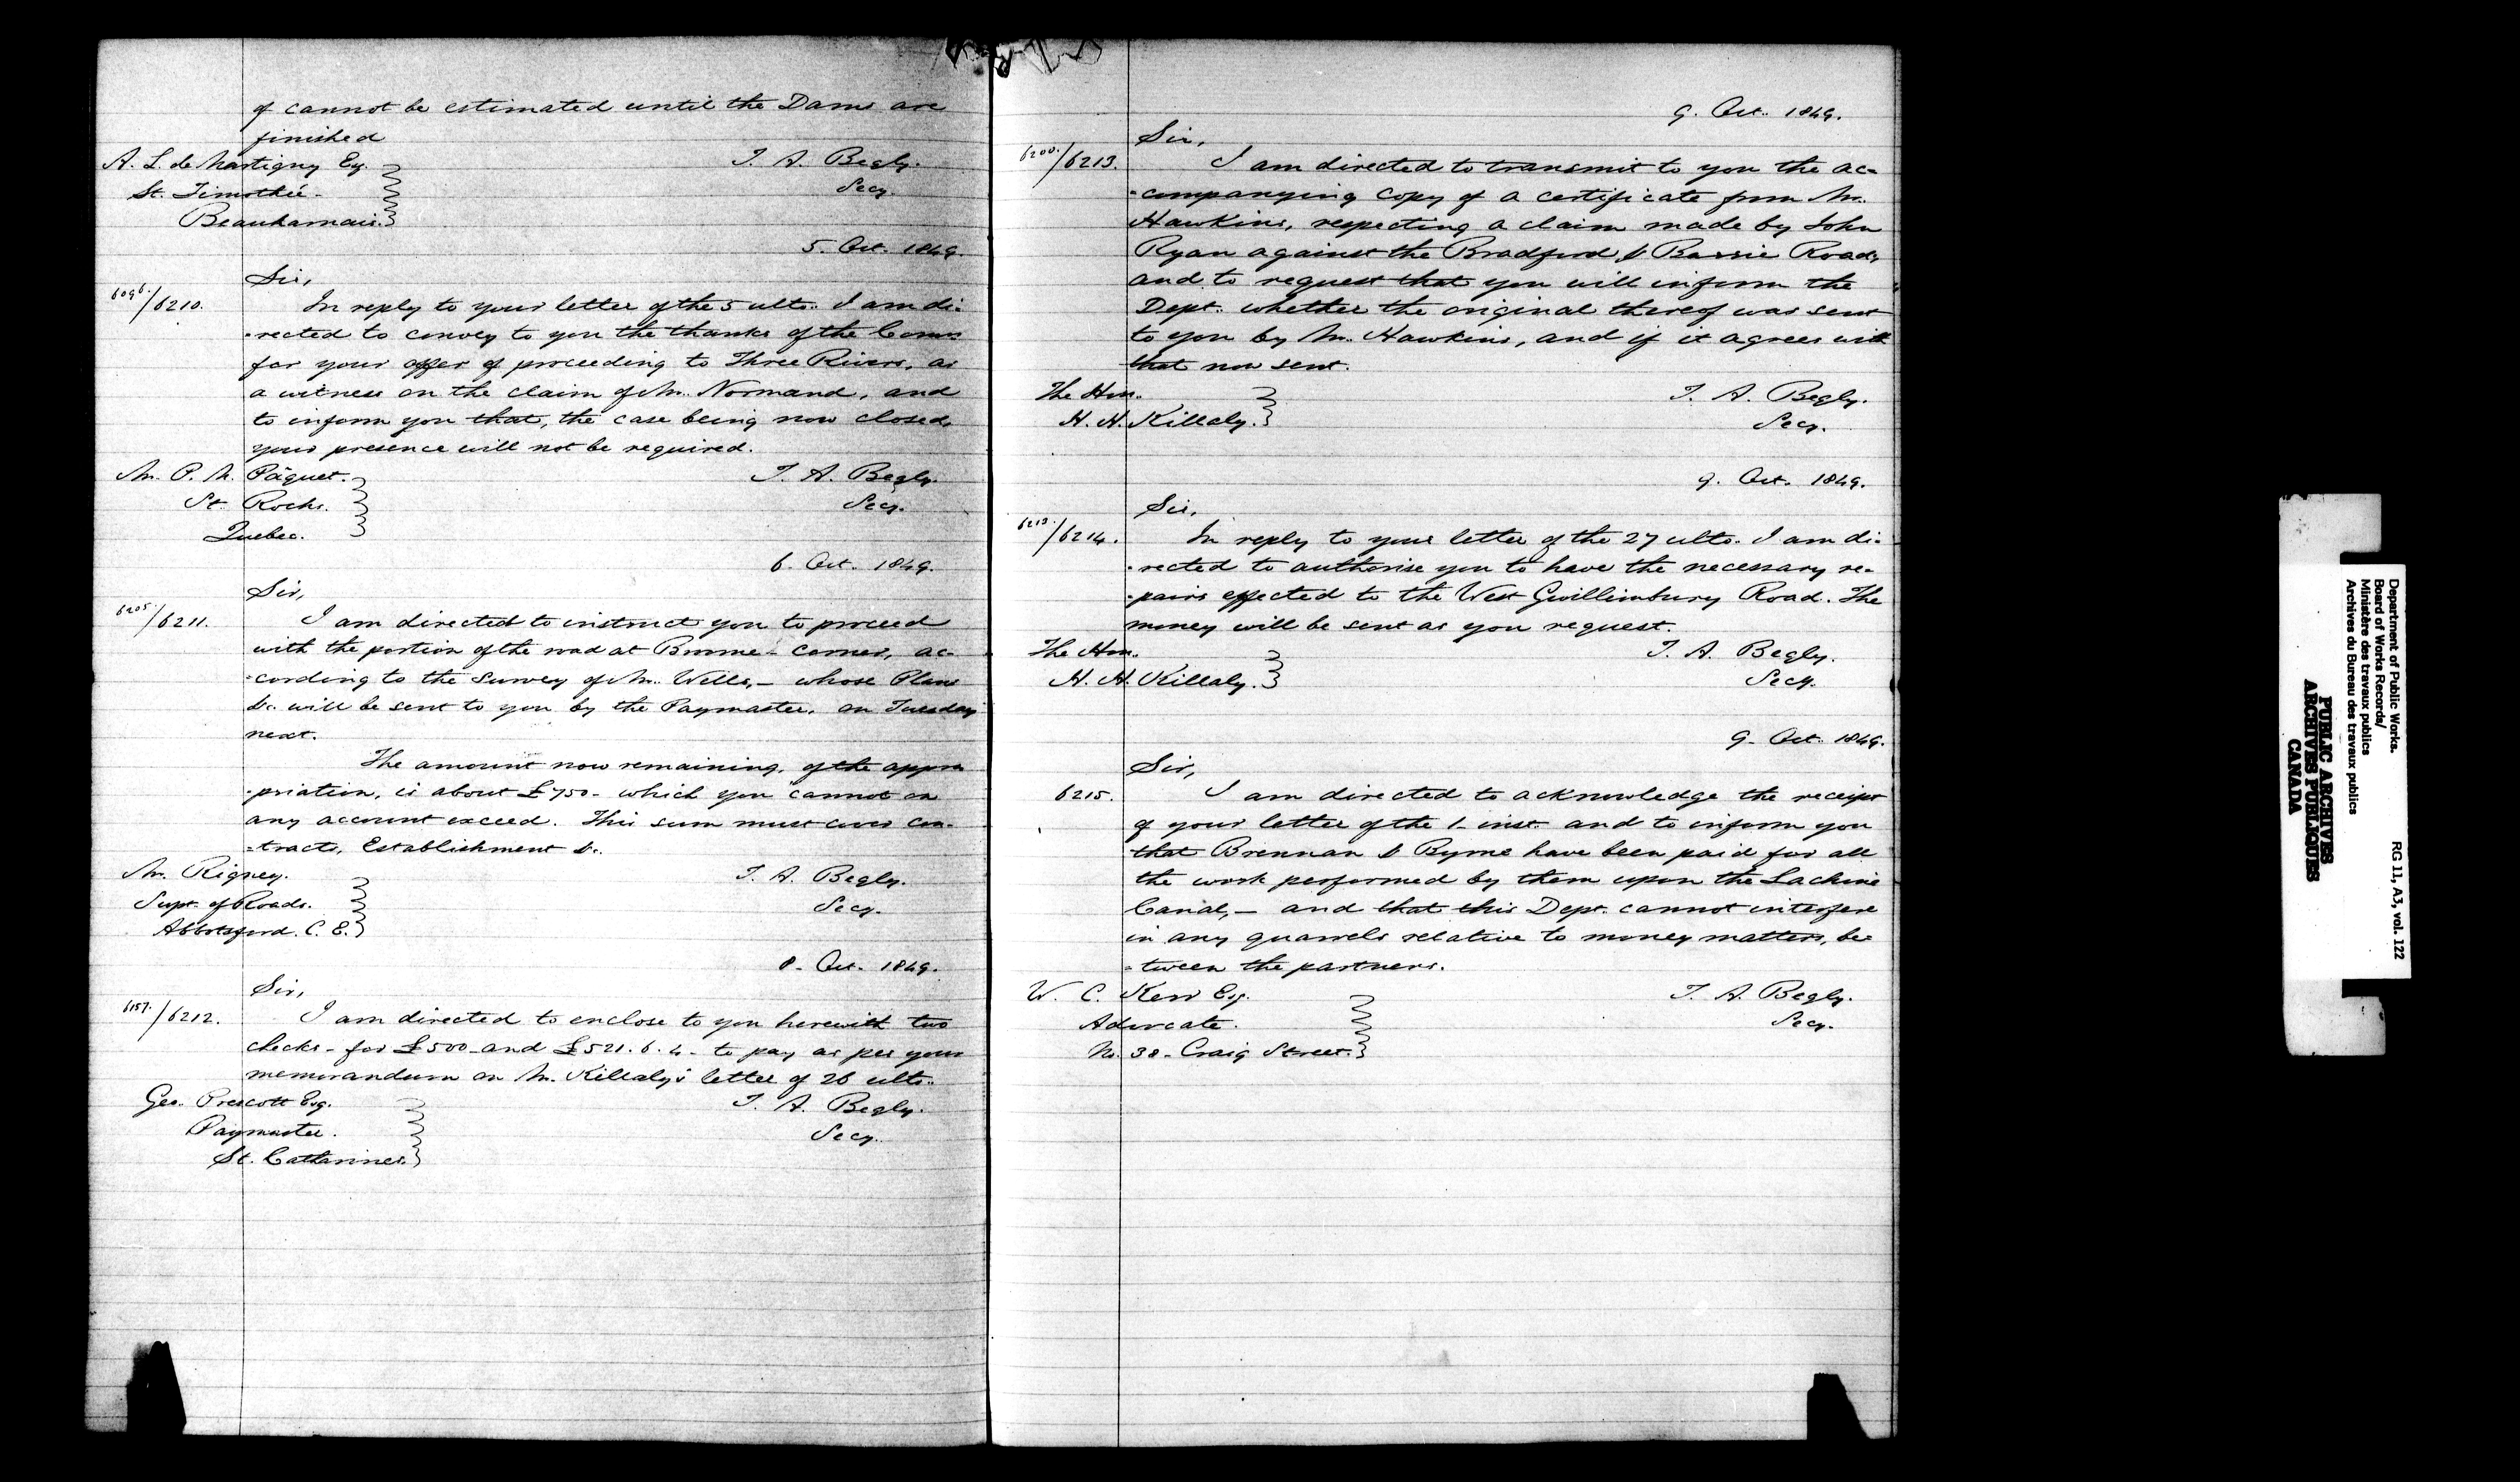 of cannot be estimated until the Dams are
finished
A. L. de Martigny Esq.
T. A. Begly.
St. Timothée -
Secy.
Beauharnais.
5. Oct. 1849.
Sir,
6096./6210.
In reply to your letter of the 5 ulto. I am di-
-rected to convey to you the thanks of the Comrs
for your offer of proceeding to Three Rivers, as
a witness on the claim of Mr. Normand, and
to inform you that, the case being now closed,
your presence will not be required.
Mr. P. M. Pâquet.
T. A. Begly.
St. Rochs.
Secy.
Quebec.
6. Oct. 1849.
Sir,
6205./6211.
I am directed to instruct you to proceed
with the portion of the road at Brome - Corner, ac-
-cording to the Survey of Mr. Wells, - whose Plans
&c. will be sent to you by the Paymaster, on Tuesday
next.
The amount now remaining, of the appro
-priation, is about £750 - which you cannot on
any account exceed. This sum must cover Con-
-tracts, Establishment &c.
Mr. Rigney.
T. A. Begly.
Supt. of Roads.
Secy.
Abbotsford. C. E.
8. Oct. 1849.
Sir,
6157./6212.
I am directed to enclose to you herewith two
checks - for £500 - and £521. 6. 4 - to pay as per your
memorandum on Mr. Killaly's letter of 26 ulto.
Geo. Prescott Esq.
T. A. Begly.
Paymaster.
Secy.
St. Catharines.
9. Oct. 1849.
Sir,
6200./6213.
I am directed to transmit to you the ac-
-companying copy of a certificate from Mr.
Hawkins, respecting a claim made by John
Ryan against the Bradford & Barrie Road,
and to request that you will inform the
Dept. whether the original thereof was sent
to you by Mr. Hawkins, and if it agrees with
that now sent.
The Hon.
T. A. Begly.
H. H. Killaly.
Secy.
9. Oct. 1849.
Sir,
6213./6214.
In reply to your letter of the 27 ulto. I am di-
-rected to authorise you to have the necessary re-
-pairs effected to the West Gwillimbury Road. The
money will be sent as you request.
The Hon.
T. A. Begly.
H. H. Killaly.
Secy.
9. Oct. 1849.
Sir,
6215.
I am directed to acknowledge the receipt
of your letter of the 1. inst. and to inform you
that Brennan & Byrne have been paid for all
the work performed by them upon the Lachine
Canal, - and that this Dept. cannot interfere
in any quarrels relative to money matters, be-
-tween the partners.
W. C. Kerr Esq.
T. A. Begly.
Advocate.
Secy.
No. 38 - Craig Street.
Department of Public Works.
Board of Works Records/
Ministère des travaux publics
Archives du Bureau des travaux publics
RG 11, A3, vol. 122
PUBLIC ARCHIVES
ARCHIVES PUBLIQUES
CANADA